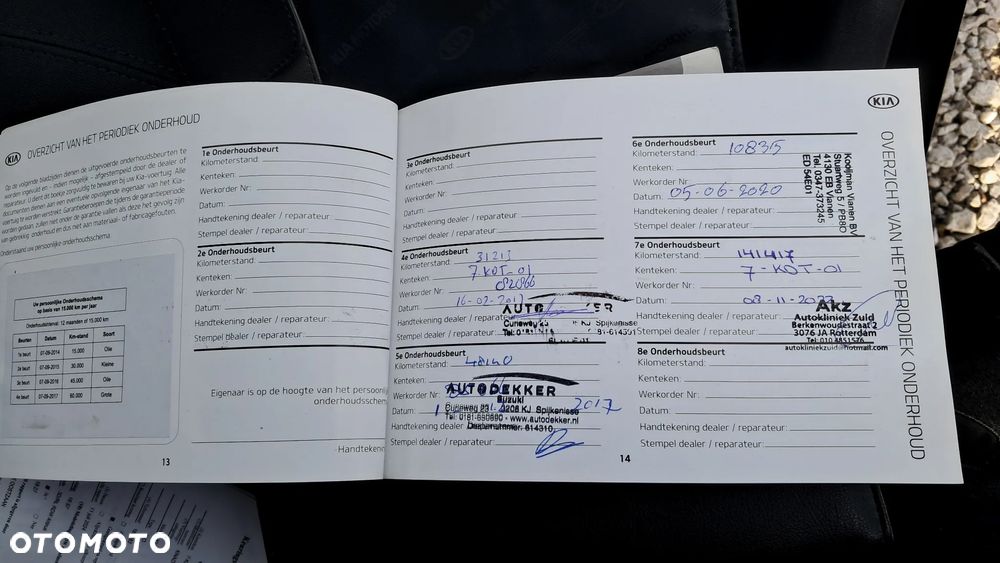 KIA
OVERZICHT VAN HET PERIODIEK ONDERHOUD
Op de volgende bladzijden dienen de uitgevoerde onderhoudsbeurten te
worden ingevuld en - indien mogelijk - afgestempeld door de dealer of
reparateur. U dient dit boekje zorgvuldig te bewaren bij uw Kia-voertuig. Alle
documenten dienen aan een eventuele opvolgende eigenaar van het Kia-
voertuig te worden verstrekt. Garantieberoepen die tijdens de garantieperiode
worden gedaan, zullen niet onder de garantie vallen als deze het gevolg zijn
van gebrekkig onderhoud en dus niet aan materiaal- of fabricagefouten.
Onderstaand uw persoonlijke onderhoudsschema.
Uw persoonlijke Onderhoudsschema
op basis van 15.000 km per jaar
Onderhoudsinterval: 12 maanden of 15.000 km
Beurten Datum Km-stand Soort
1e beurt 07-09-2014 15.000 Olie
2e beurt 07-09-2015 30.000 Kleine
3e beurt 07-09-2016 45.000 Olie
4e beurt 07-09-2017 60.000 Grote
1e Onderhoudsbeurt
Kilometerstand:
Kenteken:
Werkorder Nr:
Datum:
Handtekening dealer / reparateur:
Stempel dealer / reparateur:
2e Onderhoudsbeurt
Kilometerstand:
Kenteken:
Werkorder Nr:
Datum:
Handtekening dealer / reparateur:
Stempel dealer / reparateur:
Eigenaar is op de hoogte van het persoonlij
onderhoudsschem
Handteken
13
3e Onderhoudsbeurt
Kilometerstand:
Kenteken:
Werkorder Nr:
Datum:
Handtekening dealer / reparateur:
Stempel dealer / reparateur:
4e Onderhoudsbeurt
Kilometerstand: 31213
Kenteken: 7-KDT-01
Werkorder Nr:
Datum: 16-02-201
Handtekening dealer / reparateur:
Stempel dealer / reparateur:
AUTO KER
Curieweg 23 KJ Spijkenisse
5e Onderhoudsbeurt
Kilometerstand: 48140
Kenteken:
Werkorder Nr:
Datum: 2017
Handtekening dealer
Stempel dealer / reparateur:
AUTODEKKER
Suzuki
Curieweg 23 3208 KJ Spijkenisse
Tel: 0181-650690 - www.autodekker.nl
Dealernummer: 614310
14
6e Onderhoudsbeurt
Kilometerstand: 10835
Kenteken:
Werkorder Nr:
Datum: 05-06-2020
Handtekening dealer / reparateur:
Stempel dealer / reparateur:
Kooijman Vianen BV
Stuartweg 5 / PB80
4130 EB Vianen
Tel. 0347-373245
ED 54E01
7e Onderhoudsbeurt
Kilometerstand: 141417
Kenteken: 7-KDT-01
Werkorder Nr:
Datum: 03-11-2022
Handtekening dealer / reparateur:
Stempel dealer / reparateur:
Akz
Autokliniek Zuid
Berkenwoudestraat 2
3076 JA Rotterdam
Tel: 010 4851576
autokliniekzuid@hotmail.com
8e Onderhoudsbeurt
Kilometerstand:
Kenteken:
Werkorder Nr:
Datum:
Handtekening dealer / reparateur:
Stempel dealer / reparateur:
KIA
OVERZICHT VAN HET PERIODIEK ONDERHOUD
OTOMOTO